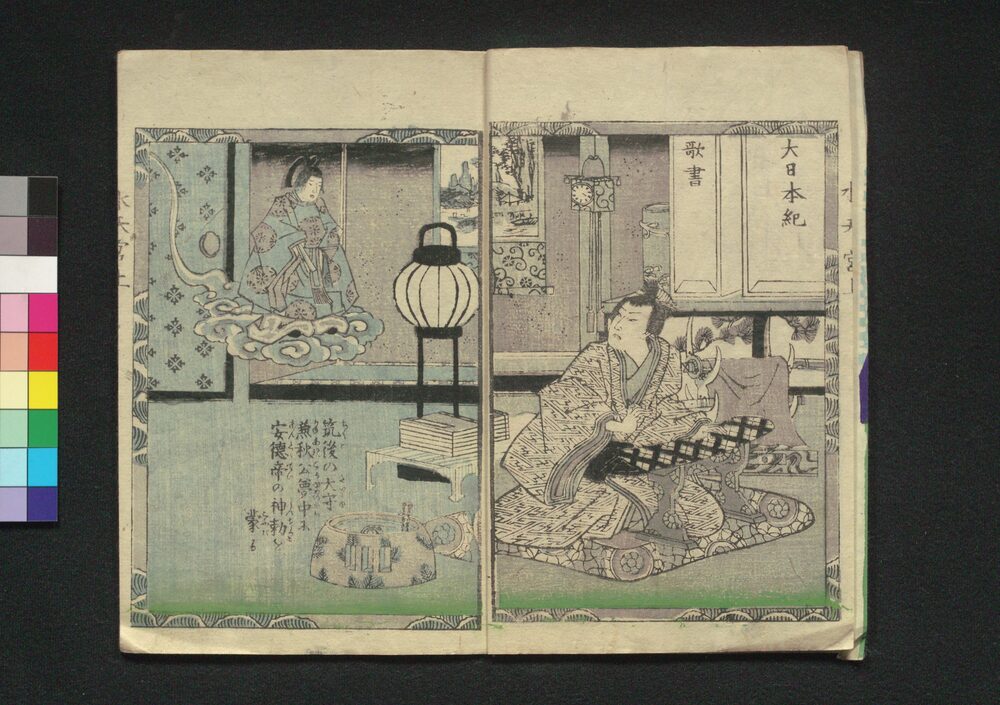 水天宮
大日本紀
歌書
筑後の大守
兼秋公夢中に
安徳帝の神勅を
蒙る